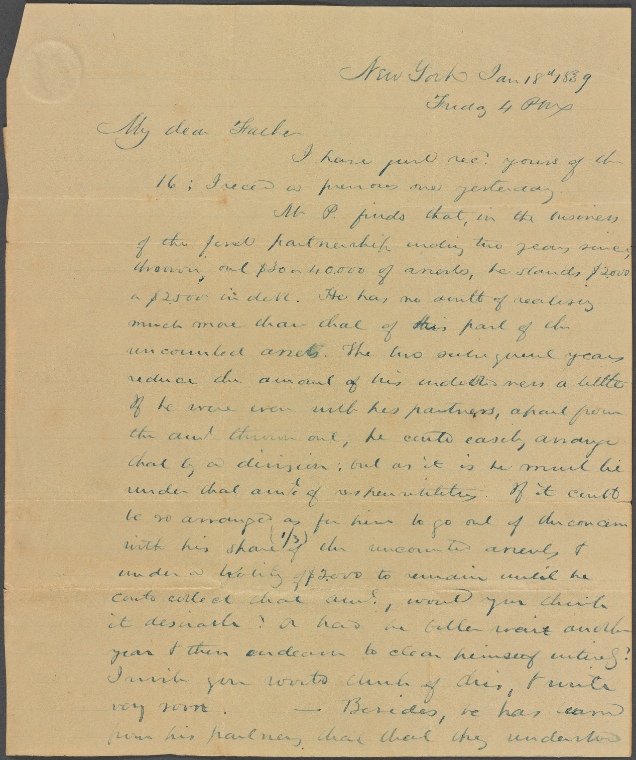 New York Jan 18th 1839
Friday 4 PM
My dear Father
I have just recd. yours of the
16; I recd a previous one yesterday
Mr P. finds that, in the business
of the firm partnership ending two years since,
throwing out $30 or 40.000 of assets, he stands $2000
or $2500 in debt. He has no doubt of realising
much more than that of this part of the
uncounted assets. The two subsequent years
reduce the amount of his indebtedness a little
If he were even with his partners, apart from
the amt thrown out, he could easily arrange
that by a division; but as it is he must lie
under that amt of responsibilities. If it could
be so arranged as for him to go out of the concern
with his share (1/3) of the uncounted assets &
under a liability of $2000 to remain until he
could collect that amt., would you think
it desirable? or had he better wait another
year & then endeavor to clear himself entirely?
I wish you would think of this, & write
very soon. — Besides, he has
from his partners, that that they understood